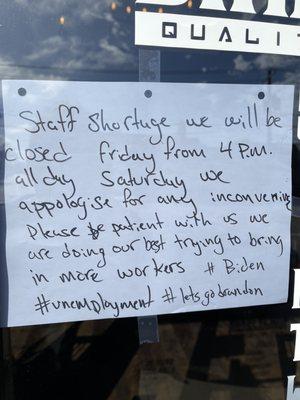 QUALI
Staff Shortuge we will be
closed Friday from 4 P.M.
all day Saturday we
appologise for any inconvenine
Please be patient with us we
are doing our best trying to bring
in more workers # Biden
#unemployment #letsgobrandon